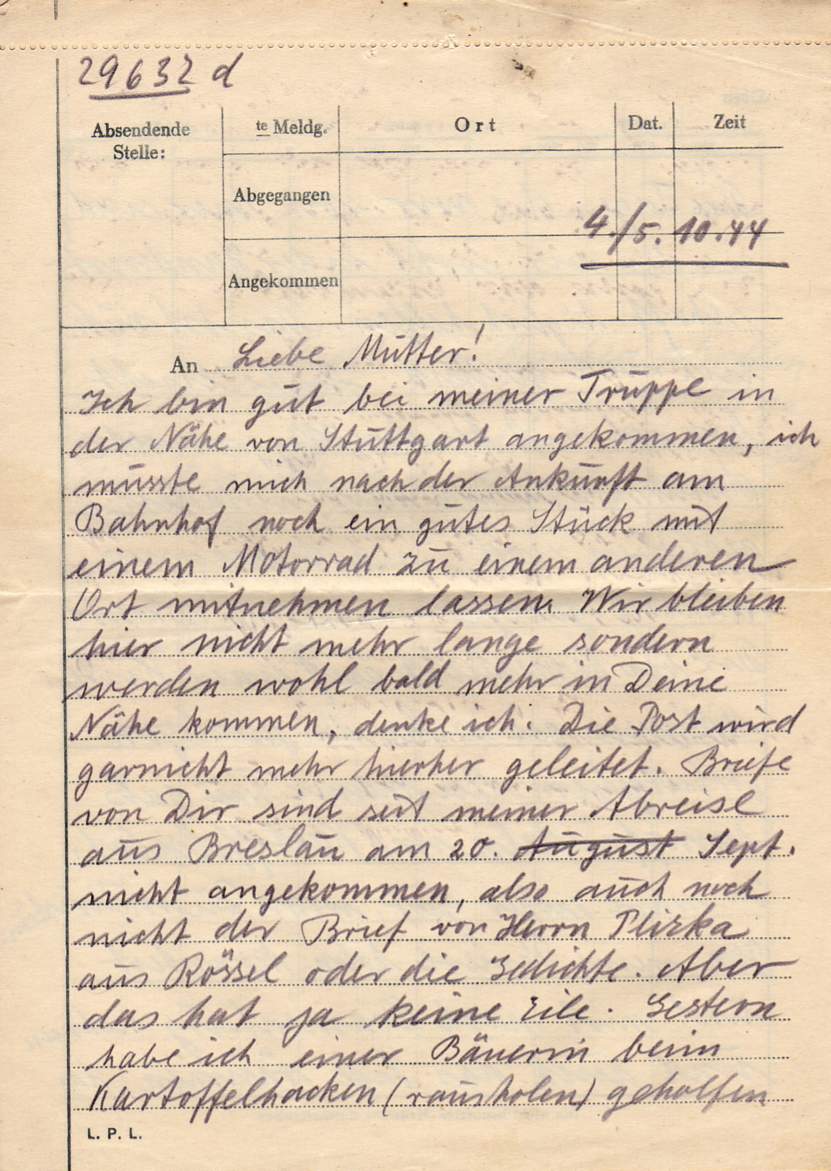 29632 d
Absendende Stelle:
te Meldg.
Ort
Dat.
Zeit
Abgegangen
Angekommen
4./5.10.44
An Liebe Mutter!
Ich bin gut bei meiner Truppe in
der Nähe von Stuttgart angekommen, ich
musste mich nach der Ankunft am
Bahnhof noch ein gutes Stück mit
einem Motorrad zu einem anderen
Ort mitnehmen lassen. Wir bleiben
hier nicht mehr lange sondern
werden wohl bald mehr in Deine
Nähe kommen, denke ich. Die Post wird
garnicht mehr hierher geleitet. Briefe
von Dir sind seit meiner Abreise
aus Breslau am 20. August Sept.
nicht angekommen, also auch noch
nicht der Brief von Herrn Plizka
aus Rössel oder die Gedichte. Aber
das hat ja keine Eile. Gestern
habe ich einer Bäuerin beim
Kartoffelhacken (rausholen) geholfen
L. P. L.